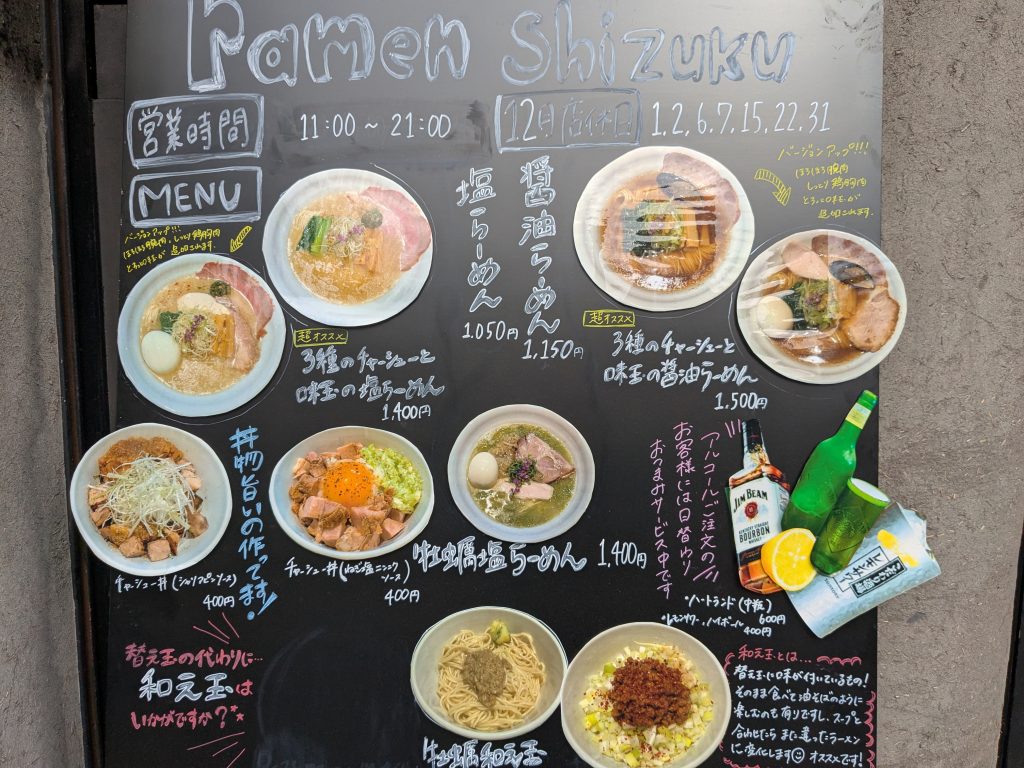 Ramen Shizuku
営業時間 11:00 ~ 21:00
12月店休日 1.2.6.7.15.22.31
MENU
バージョンアップ!!!
しっとり鶏胸肉
追加されます。
塩らーめん
1.050円
醤油らーめん
1,150円
バージョンアップ!!!
ほろほろ豚肉
しっとり鶏胸肉
追加されます.
超オススメ
3種のチャーシューと
味玉の塩らーめん
1,400円
超オススメ
3種のチャーシューと
味玉の醤油らーめん
1,500円
チャーシュー丼
400円
丼物旨いの作ってます!
チャーシュー丼 (ねぎ塩ニンニク
ソース)
400円
牡蠣塩らーめん 1,400円
アルコールご注文の
お客様には日替わり
おつまみサービス中です
JIM BEAM
KENTUCKY STRAIGHT
BOURBON
WHISKEY
・ハートランド (中瓶)
600円
・レモンサワー・ハイボール
400円
替え玉の代わりに…
和え玉は
いかがですか?
牡蠣和え玉
和え玉とは…
替え玉に味が付いているもの!
そのまま食べて油そばのように
楽しむのも有りですし、スープと
合わせたら また違ったラーメン
に変化します オススメです!